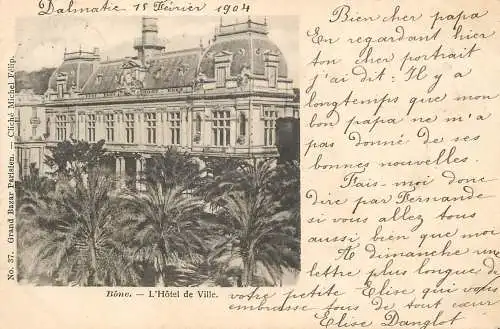 Dalmatie 15 Février 1904
Bien cher papa
En regardant hier
ton cher portrait
j'ai dit : Il y a
longtemps que mon
bon papa ne m'a
pas donné de ses
bonnes nouvelles.
Fais-moi donc
dire par Fernande
si vous allez tous
aussi bien que moi.
A dimanche une
lettre plus longue de
votre petite Elise qui vous
embrasse tous de tout cœur
Elise Danglot
No. 37. Grand Bazar Parisien. — Cliché Michel Félip.
Bône. — L'Hôtel de Ville.